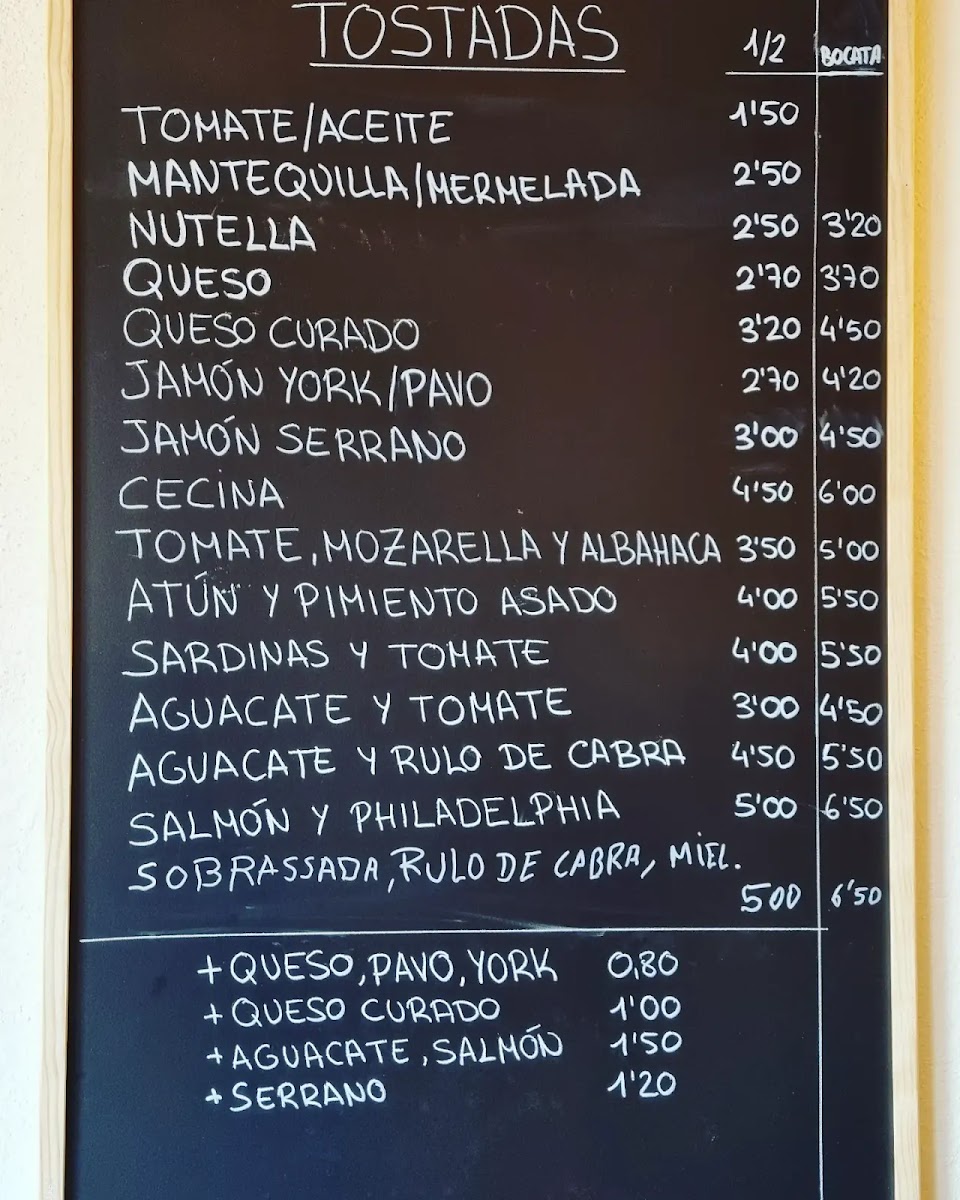 TOSTADAS 1/2 BOCATA
TOMATE/ACEITE 1'50
MANTEQUILLA/MERMELADA 2'50
NUTELLA 2'50 3'20
QUESO 2'70 3'70
QUESO CURADO 3'20 4'50
JAMÓN YORK/PAVO 2'70 4'20
JAMÓN SERRANO 3'00 4'50
CECINA 4'50 6'00
TOMATE, MOZARELLA Y ALBAHACA 3'50 5'00
ATÚN Y PIMIENTO ASADO 4'00 5'50
SARDINAS Y TOMATE 4'00 5'50
AGUACATE Y TOMATE 3'00 4'50
AGUACATE Y RULO DE CABRA 4'50 5'50
SALMÓN Y PHILADELPHIA 5'00 6'50
SOBRASSADA, RULO DE CABRA, MIEL.
500 6'50
+ QUESO, PAVO, YORK 0,80
+ QUESO CURADO 1'00
+ AGUACATE, SALMÓN 1'50
+ SERRANO 1'20